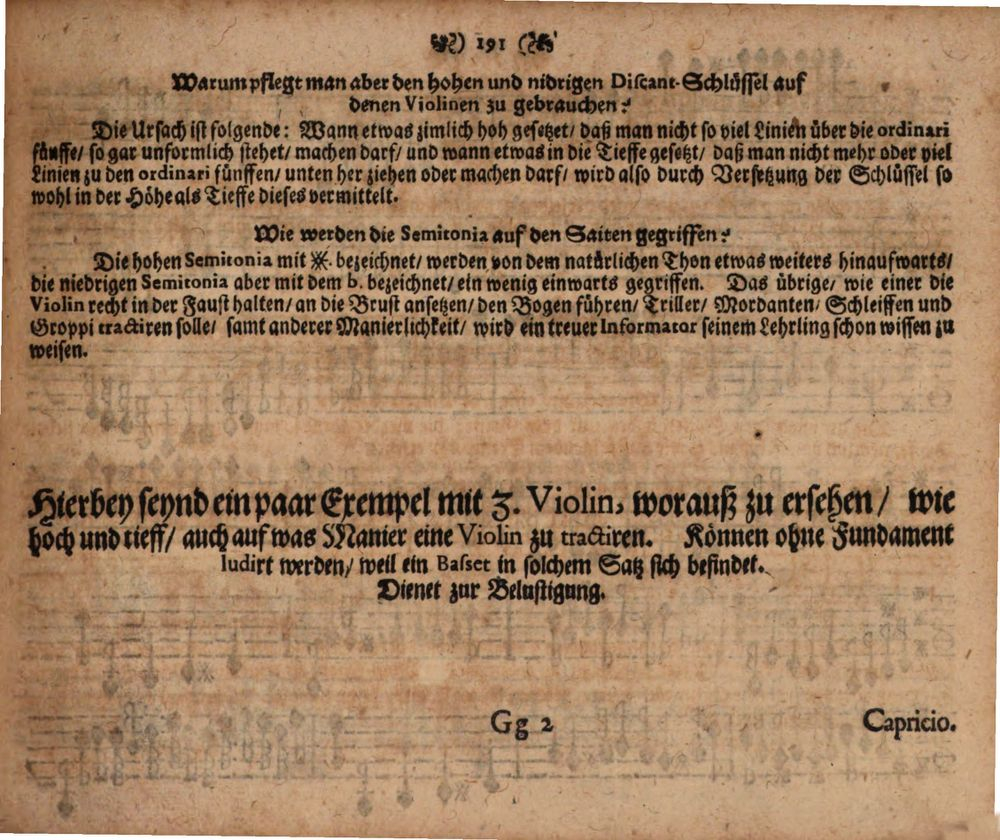 ) 191 (
Warum pflegt man aber den hohen und nidrigen Discant-Schlüssel auf
denen Violinen zu gebrauchen?
Die Ursach ist folgende: Wann etwas zimlich hoh gesetzet/ daß man nicht so viel Linien über die ordinari
fünffe/ so gar unformlich stehet/ machen darf/ und wann etwas in die Tieffe gesetzt/ daß man nicht mehr oder viel
Linien zu den ordinari fünffen/ unten her ziehen oder machen darf/ wird also durch Versetzung der Schlüssel so
wohl in der Höhe als Tieffe dieses vermittelt.
Wie werden die Semitonia auf den Saiten gegriffen?
Die hohen Semitonia mit ※. bezeichnet/ werden von dem natürlichen Thon etwas weiters hinaufwarts/
die niedrigen Semitonia aber mit dem b. bezeichnet/ ein wenig einwarts gegriffen. Das übrige/ wie einer die
Violin recht in der Faust halten/ an die Brust ansetzen/ den Bogen führen/ Triller/ Mordanten/ Schleiffen und
Groppi tractiren solle/ samt anderer Manierlichkeit/ wird ein treuer Informator seinem Lehrling schon wissen zu
weisen.
Hierbey seynd ein paar Exempel mit 3. Violin, worauß zu ersehen/ wie
hoch und tieff/ auch auf was Manier eine Violin zu tractiren. Können ohne Fundament
ludirt werden/ weil ein Basset in solchem Satz sich befindet.
Dienet zur Belustigung.
Gg 2 Capricio.